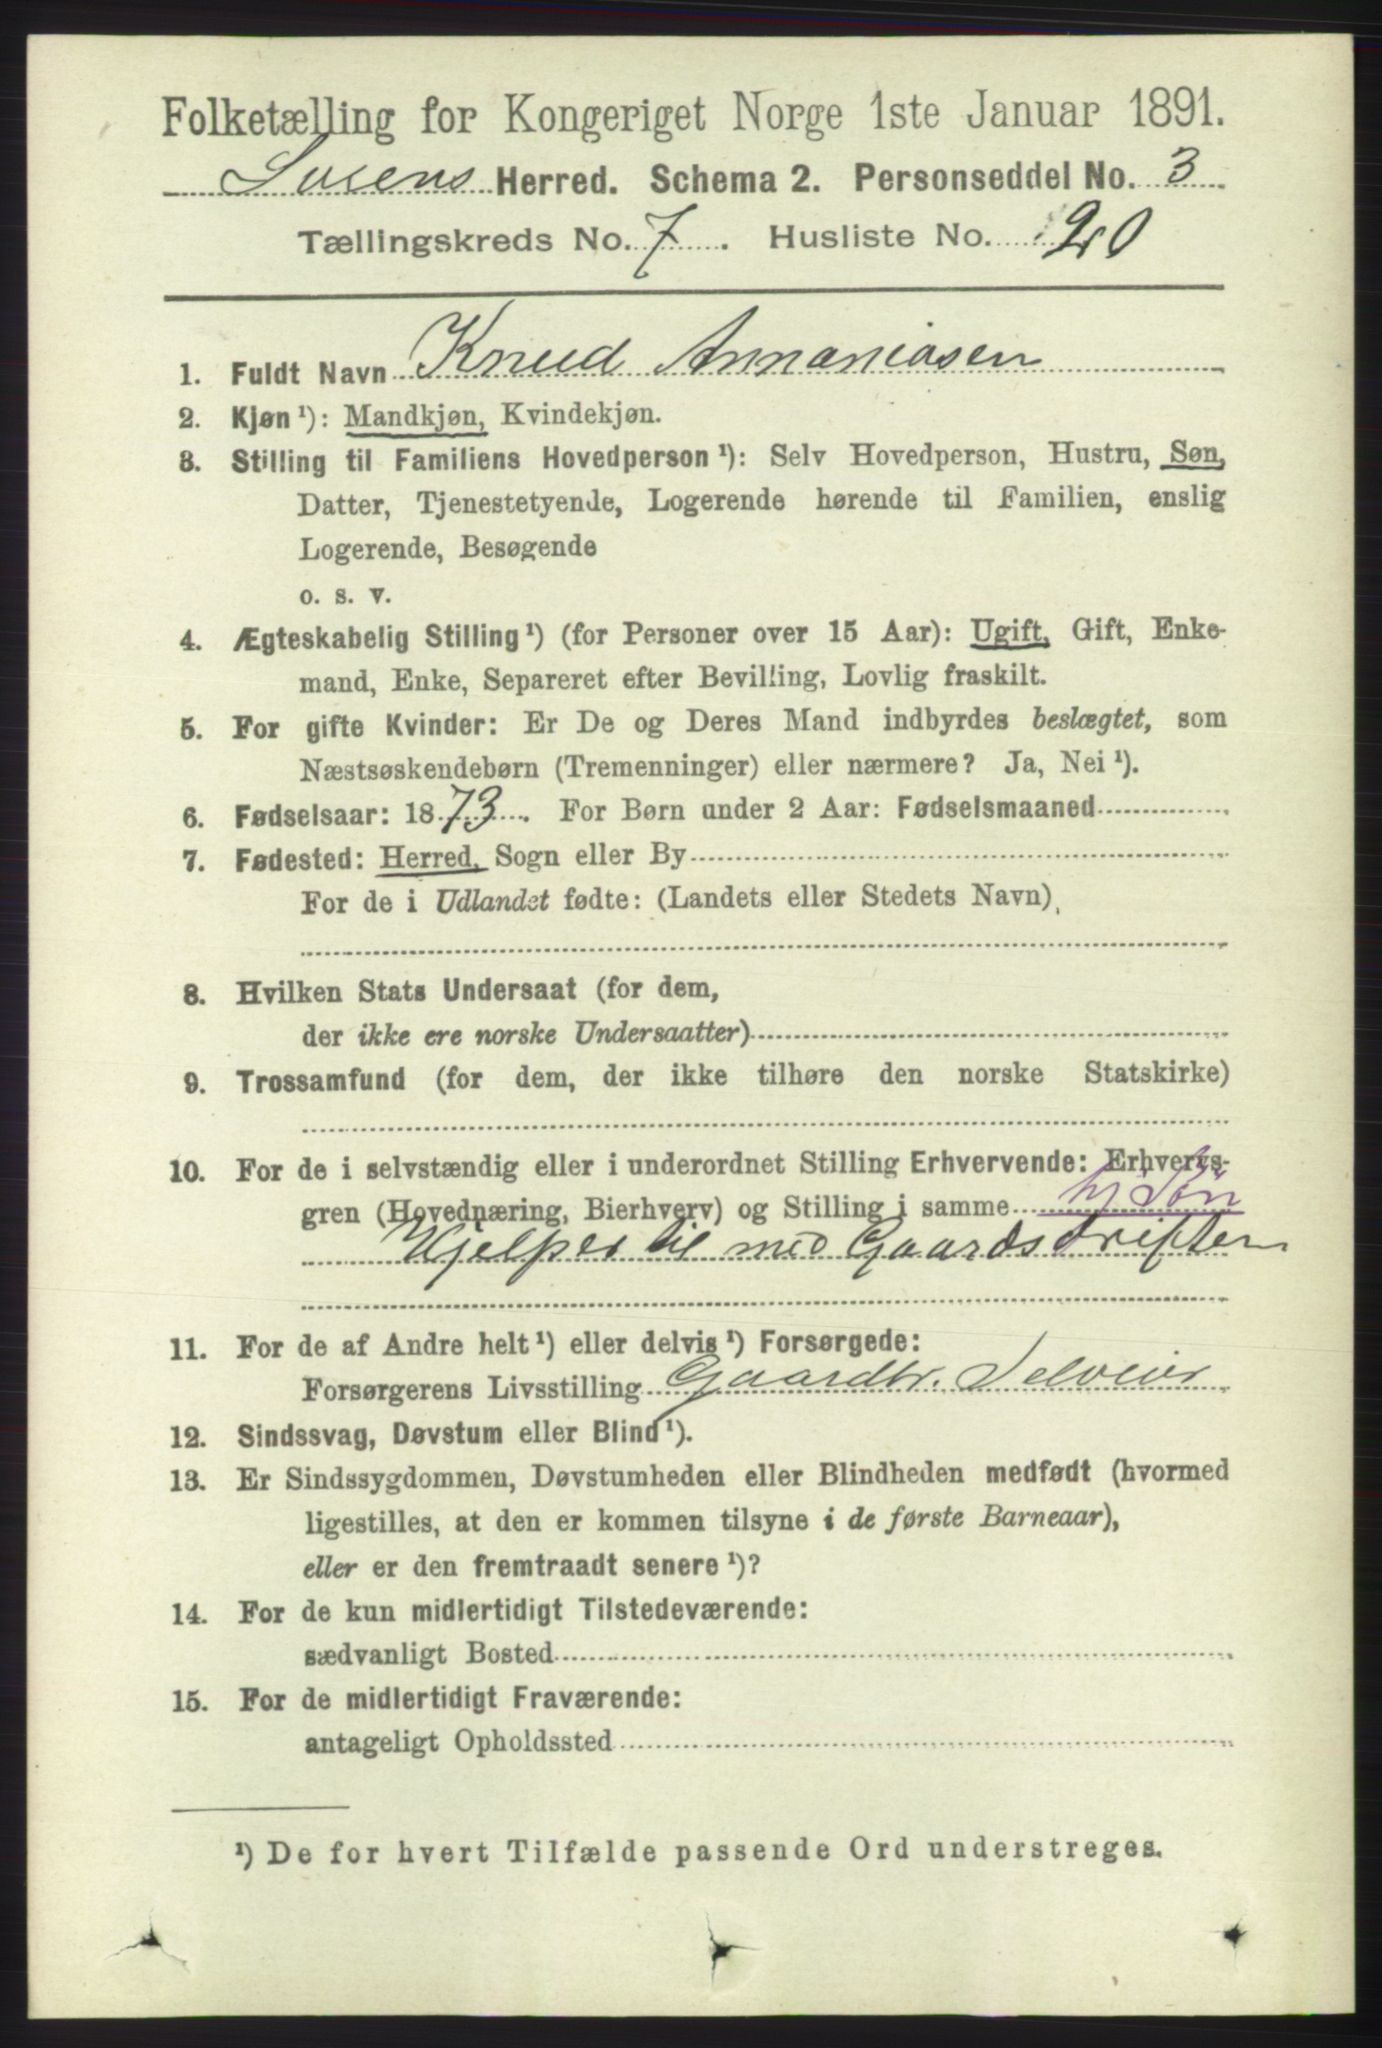 Folketælling for Kongeriget Norge 1ste Januar 1891.
Herred. Schema 2. Personseddel No. 3
Tællingskreds No. 7. Husliste No. 20
1. Fuldt Navn Knud Annaniasen
2. Kjøn ¹): Mandkjøn, Kvindekjøn.
3. Stilling til Familiens Hovedperson ¹): Selv Hovedperson, Hustru, Søn,
Datter, Tjenestetyende, Logerende hørende til Familien, enslig
Logerende, Besøgende
o. s. v.
4. Ægteskabelig Stilling ¹) (for Personer over 15 Aar): Ugift, Gift, Enke-
mand, Enke, Separeret efter Bevilling, Lovlig fraskilt.
5. For gifte Kvinder: Er De og Deres Mand indbyrdes beslægtet, som
Næstsøskendebørn (Tremenninger) eller nærmere? Ja, Nei ¹).
6. Fødselsaar: 1873. For Børn under 2 Aar: Fødselsmaaned
7. Fødested: Herred, Sogn eller By
For de i Udlandet fødte: (Landets eller Stedets Navn)
8. Hvilken Stats Undersaat (for dem,
der ikke ere norske Undersaatter)
9. Trossamfund (for dem, der ikke tilhøre den norske Statskirke)
10. For de i selvstændig eller i underordnet Stilling Erhvervende: Erhvervs-
gren (Hovednæring, Bierhverv) og Stilling i samme hj Søn
Hjelper til med Gaardsdriften
11. For de af Andre helt ¹) eller delvis ¹) Forsørgede:
Forsørgerens Livsstilling Gaardbr. Selveier
12. Sindssvag, Døvstum eller Blind ¹).
13. Er Sindssygdommen, Døvstumheden eller Blindheden medfødt (hvormed
ligestilles, at den er kommen tilsyne i de første Barneaar),
eller er den fremtraadt senere ¹)?
14. For de kun midlertidigt Tilstedeværende:
sædvanligt Bosted
15. For de midlertidigt Fraværende:
antageligt Opholdssted
¹) De for hvert Tilfælde passende Ord understreges.